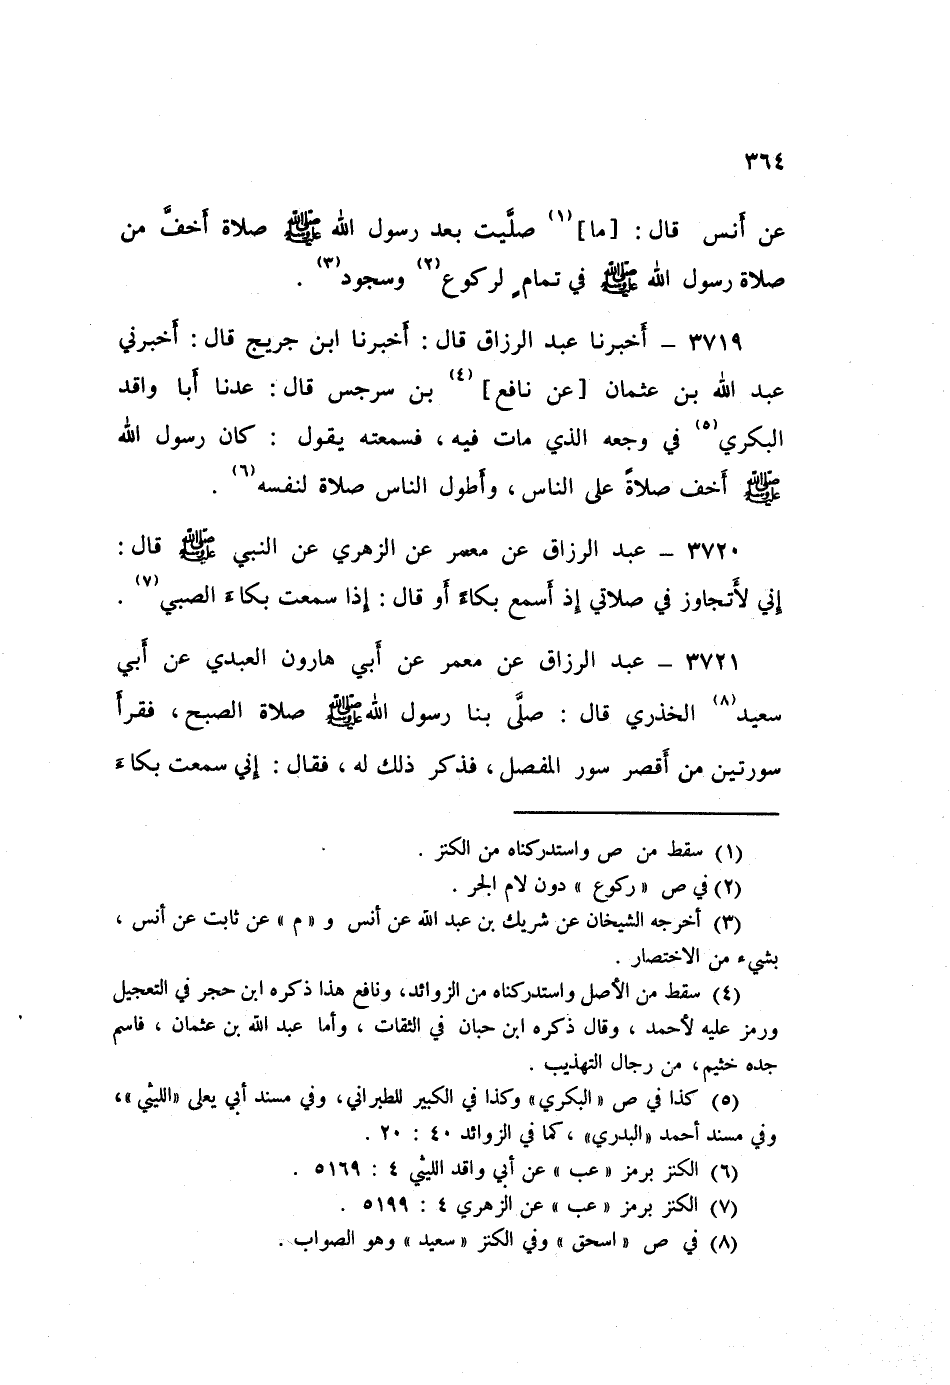 ٣٦٤
عن أَنس قال : [ما](١) صلَّيت بعد رسول الله ﷺ صلاة أَخفَّ من
صلاة رسول الله ﷺ في تمامٍ لركوع(٢) وسجود(٣) .
٣٧١٩ – أَخبرنا عبد الرزاق قال : أَخبرنا ابن جريج قال : أَخبرني
عبد الله بن عثمان [عن نافع](٤) بن سرجس قال : عدنا أَبا واقد
البكري(٥) في وجعه الذي مات فيه ، فسمعته يقول : كان رسول الله
ﷺ أَخف صلاةً على الناس ، وأَطول الناس صلاة لنفسه(٦) .
٣٧٢٠ – عبد الرزاق عن معمر عن الزهري عن النبي ﷺ قال :
إِني لأَتجاوز في صلاتي إِذ أَسمع بكاءً أَو قال : إِذا سمعت بكاءَ الصبي(٧) .
٣٧٢١ – عبد الرزاق عن معمر عن أَبي هارون العبدي عن أَبي
سعيد(٨) الخذري قال : صلَّى بنا رسول الله ﷺ صلاة الصبح ، فقرأَ
سورتين من أَقصر سور المفصل ، فذكر ذلك له ، فقال : إِني سمعت بكاءَ
(١) سقط من ص واستدركناه من الكنز .
(٢) في ص « ركوع » دون لام الجر .
(٣) أخرجه الشيخان عن شريك بن عبد الله عن أنس و « م » عن ثابت عن أنس ،
بشيء من الاختصار .
(٤) سقط من الأصل واستدركناه من الزوائد، ونافع هذا ذكره ابن حجر في التعجيل
ورمز عليه لأحمد ، وقال ذكره ابن حبان في الثقات ، وأما عبد الله بن عثمان ، فاسم
جده خثيم، من رجال التهذيب .
(٥) كذا في ص «البكري» وكذا في الكبير للطبراني، وفي مسند أبي يعلى «الليثي »،
وفي مسند أحمد «البدري» ، كما في الزوائد ٤٠ : ٢٠ .
(٦) الكنز برمز « عب » عن أبي واقد الليثي ٤ : ٥١٦٩ .
(٧) الكنز برمز « عب » عن الزهري ٤ : ٥١٩٩ .
(٨) في ص « اسحق » وفي الكنز « سعيد » وهو الصواب .